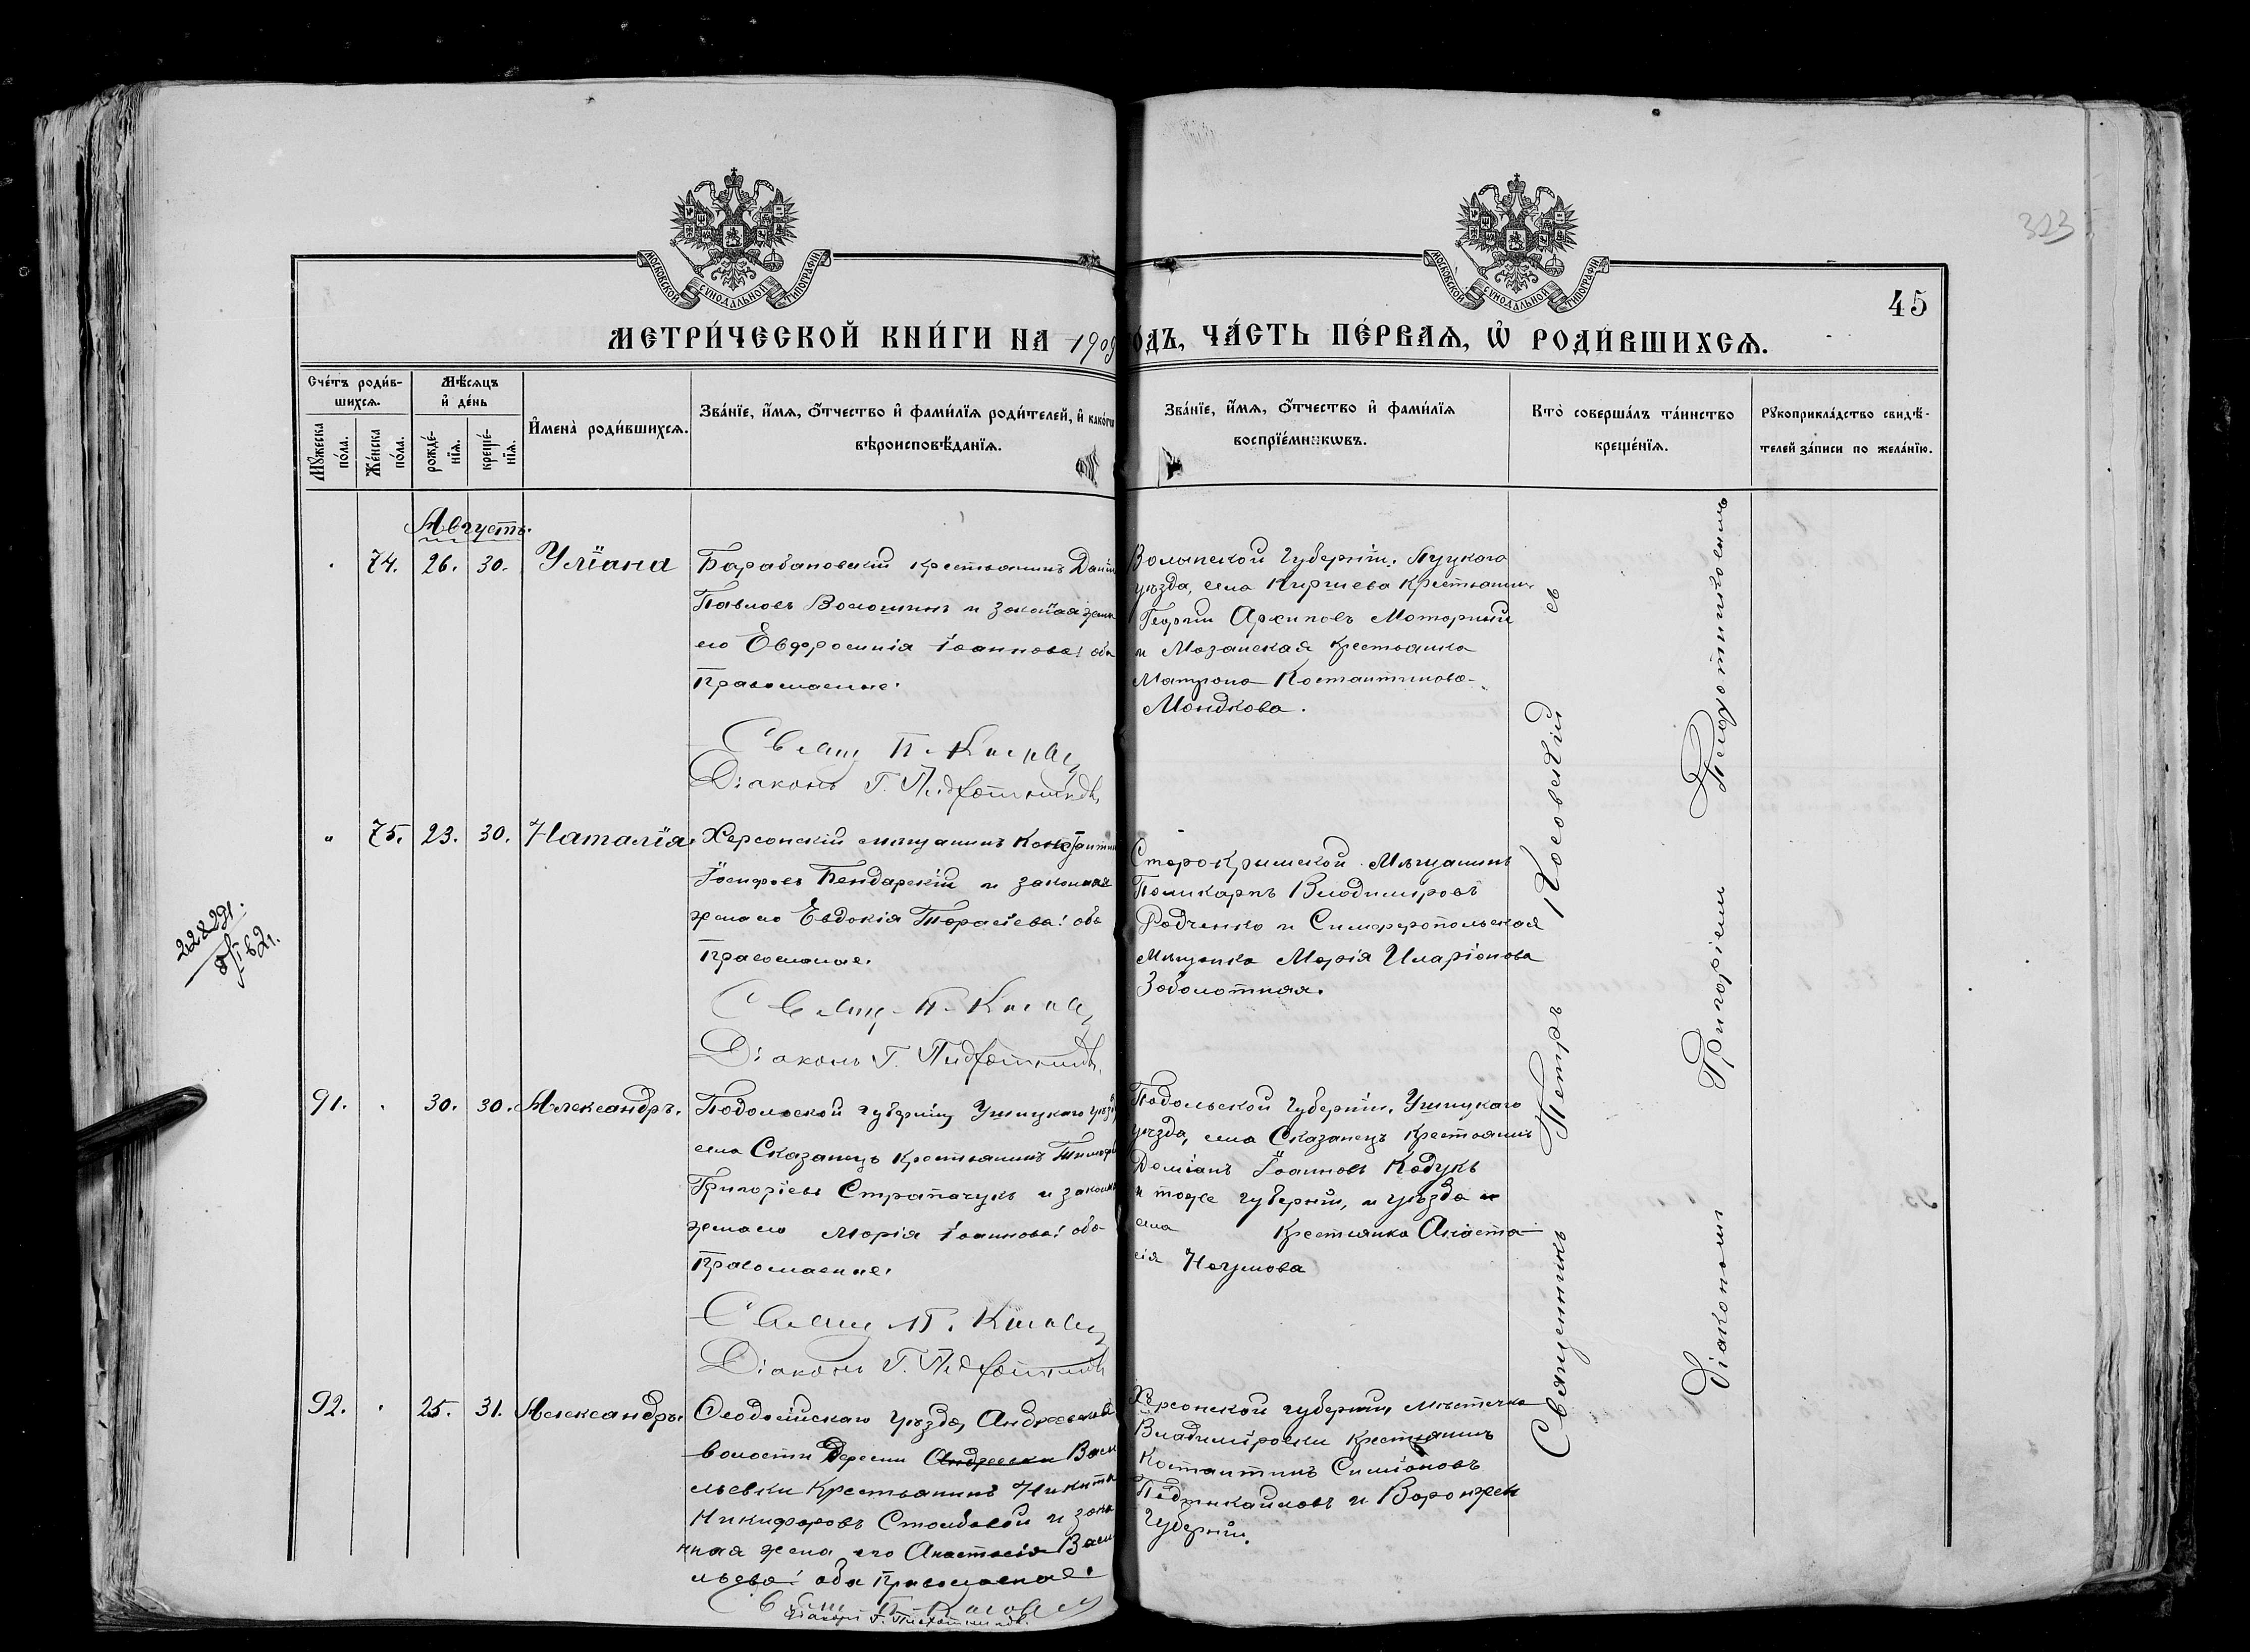 323
МОСКОВСКОЙ СУНОДАЛЬНОЙ ТИПОГРАФІИ
МОСКОВСКОЙ СУНОДАЛЬНОЙ ТИПОГРАФІИ
45
МЕТРИ́ЧЕСКОЙ КНИ́ГИ НА 1909 ГО́ДЪ, ЧА́СТЬ ПЕ́РВАѦ, Ѡ҆ РОДИ́ВШИХСѦ.
Сче́тъ роди́в-
шихсѧ.
Мѣ́сѧцъ
и҆ де́нь
Мꙋжеска
по́ла.
Же́нска
по́ла.
рожде́-
нїѧ.
креще́-
нїѧ.
И҆мена̀ роди́вшихсѧ.
Зва́нїе, и҆́мѧ, ѻ҆́тчество и҆ фами́лїѧ роди́телей, и҆ како́гѡ
вѣроисповѣ́данїѧ.
Зва́нїе, и҆́мѧ, ѻ҆́тчество и҆ фами́лїѧ
воспрїе́мникѡвъ.
Кто̀ соверша́лъ та́инство
креще́нїѧ.
Рꙋкоприкла́дство свидѣ́-
телей за́писи по жела́нїю.
Августъ.
74. 26. 30. Уліана
Барабановскій крестьянинъ Даніи
Павловъ Волошинъ и законая жена
его Евфросинія Іоаннова: оба
Православные.
Свящ П. Косов
Діаконъ Г.
Волынской губерніи, Луцкаго
уѣзда, села Киршева крестьянинъ
Георгій Архиповъ Моторный
и Мазанская крестьянка
Матрона Костантинова
Мондкова.
" 75. 23. 30. Наталія.
Херсонскій мѣщанинъ Константин
Іосифовъ Бендарскій и законная
жена его Евдокія Тарасіева: оба
Православные.
Свящ. П. Косов
Діаконъ Г.
Старо-Крымской Мѣщанинъ
Поликарпъ Владиміровъ
Радченко и Симферопольская
Мѣщанка Марія Иларіонова
Заболотная.
22829.
91. 30. 30. Александръ.
Подольской губерніи, Ушицкаго уѣзда
села Сказанецъ крестьянинъ Тимофей
Григоріевъ Страпачукъ и законн
жена его Марія Іоаннова: оба
Православные.
Свящ П. Косов
Діаконъ Г.
Подольской губерніи, Ушицкаго
уѣзда, села Сказанецъ крестьянинъ
Даміанъ Іоанновъ Кадукъ
и тоже губерніи, и уѣзда и
села крестьянка Анаста
сія Наумова
92. 25. 31. Александръ.
Ѳеодосійскаго уѣзда, Андреевской
волости деревни Андреевки Васи
льевки крестьянинъ Никита
Никифоровъ Столбовой и зако
нная жена его Анастасія Васи
льева: оба Православные.
Свящ П. Косов
Діаконъ Г.
Херсонской губерніи, мѣстечка
Владиміровки крестьянинъ
Костантинъ Симіоновъ
и Воронжск
Губерніи.
Священникъ Петръ Косовскій съ
Діакономъ Григоріемъ